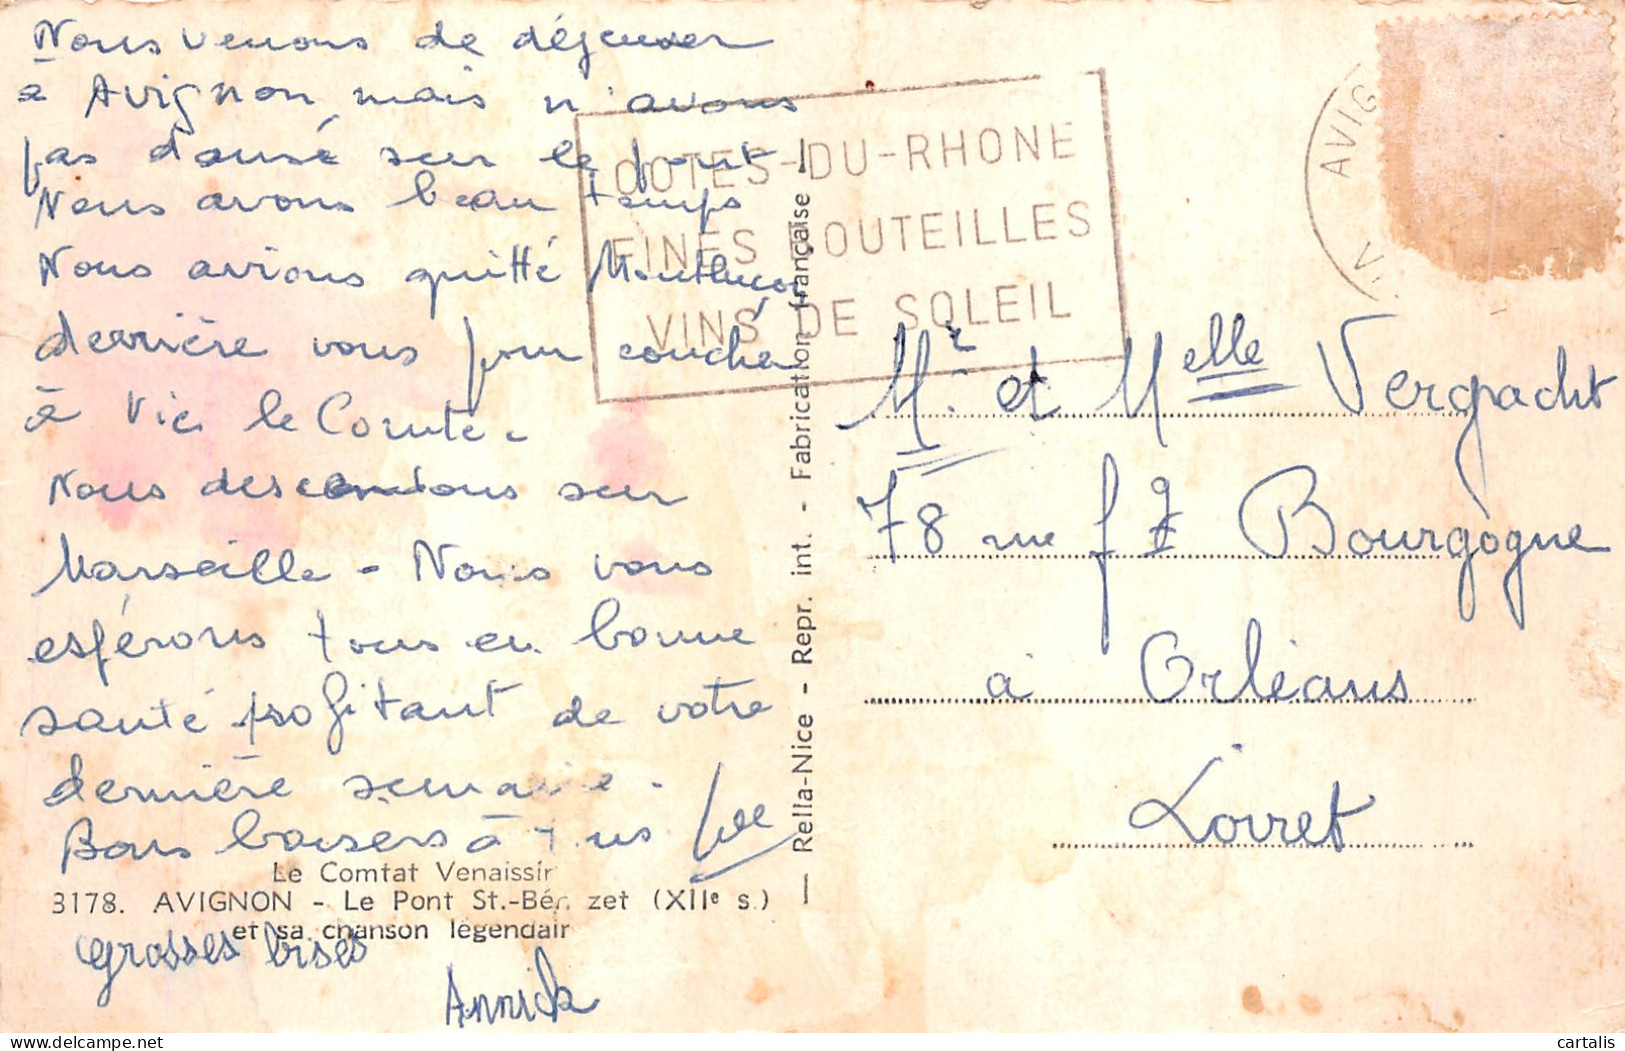 Nous venons de déjeuner
à Avignon mais n'avons
pas dansé sur le pont!
Nous avons beau temps
Nous avions quitté Montluçon
derrière vous pour coucher
à Vic le Comte.
Nous descendons sur
Marseille - Nous vous
espérons tous en bonne
santé profitant de votre
dernière semaine.
Bons baisers à tous
Le Comtat Venaissin
3178. AVIGNON - Le Pont St.-Bénezet (XIIe s.)
et sa chanson légendair
Grosses bises
Annick
— Rella-Nice - Repr. int. - Fabrication française —
COTES-DU-RHONE
FINES BOUTEILLES
VINS DE SOLEIL
AVIG
Mr. et Melle Vergpacht
78 rue fg Bourgogne
à Orléans
Loiret
cartalis
delcampe.net